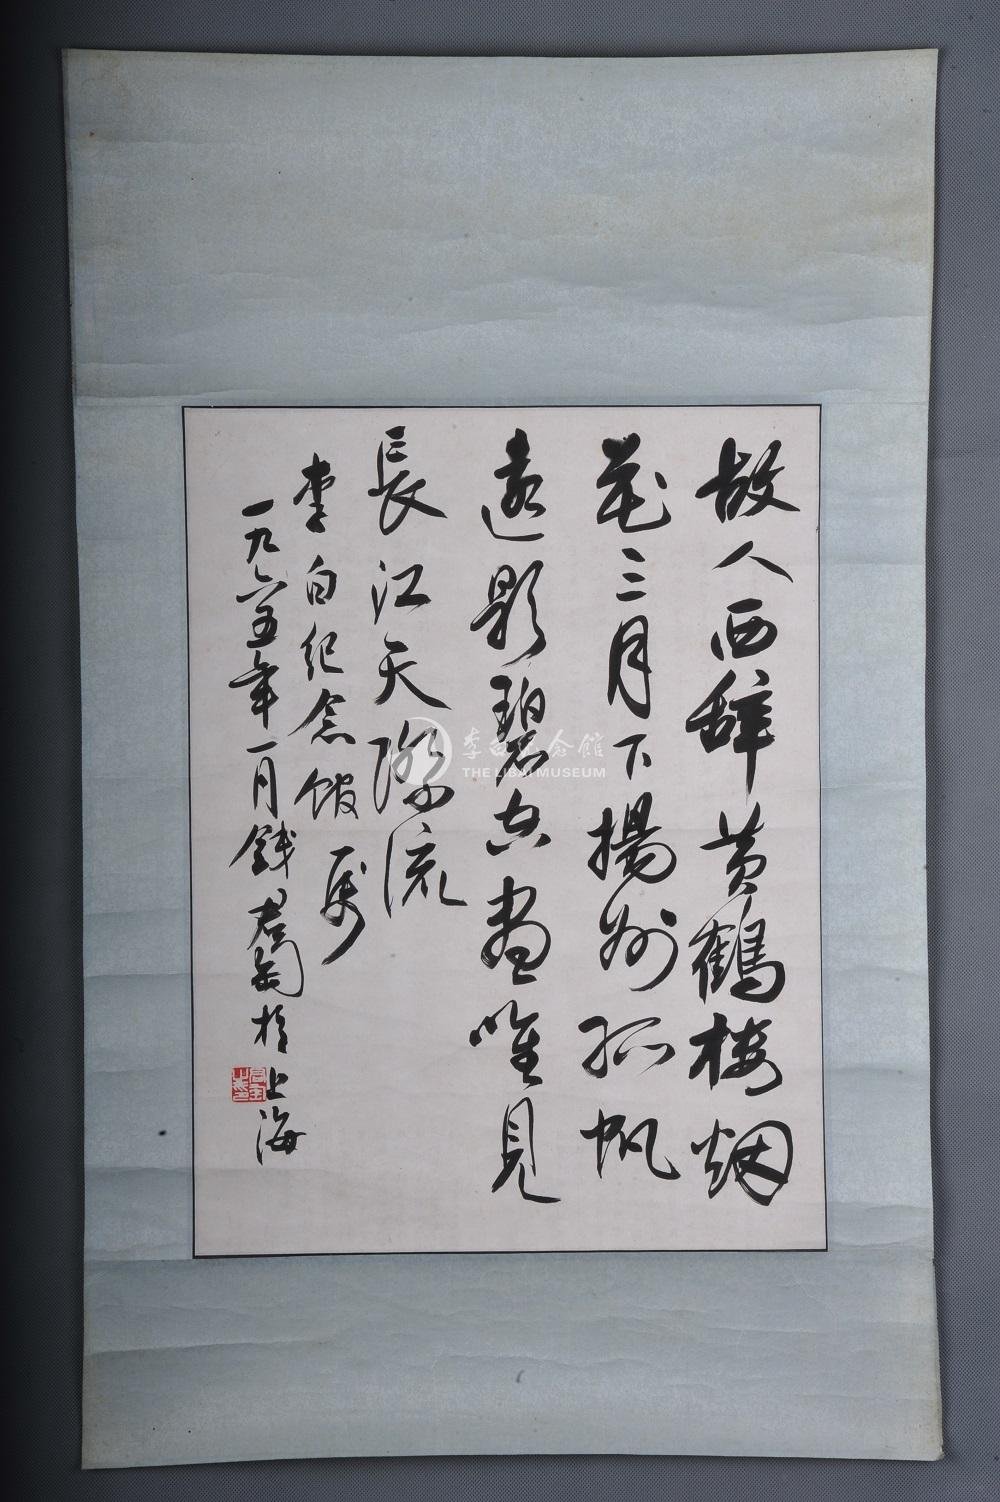 故人西辞黄鹤楼烟
花三月下揚州孤帆
遠影碧空盡唯見
長江天際流
李白纪念馆属
一九六五年一月钱君匋於上海
李白纪念馆
THE LIBAI MUSEUM